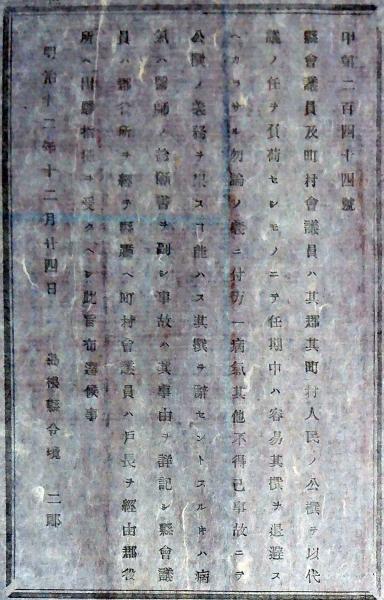 甲第二百四十四號
縣會議員及町村會議員ハ其郡其町村人民ノ公撰ヲ以代
議ノ任ヲ負荷セシモノニテ任期中ハ容易其撰ヲ退避ス
ヘカラサル勿論ノ義ニ付万一病氣其他不得已事故ニテ
公撰ノ義務ヲ果スコ能ハス其撰ヲ辭セントスルキハ病
氣ハ醫師ノ診斷書ヲ副シ事故ハ其事由ヲ詳記シ縣會議
員ハ郡役所ヲ經テ縣廳ヘ町村會議員ハ戸長ヲ經由郡役
所ヘ出願指揮ヲ受クヘシ此旨布達候事
明治十二年十二月廿四日 島根縣令境 二郎